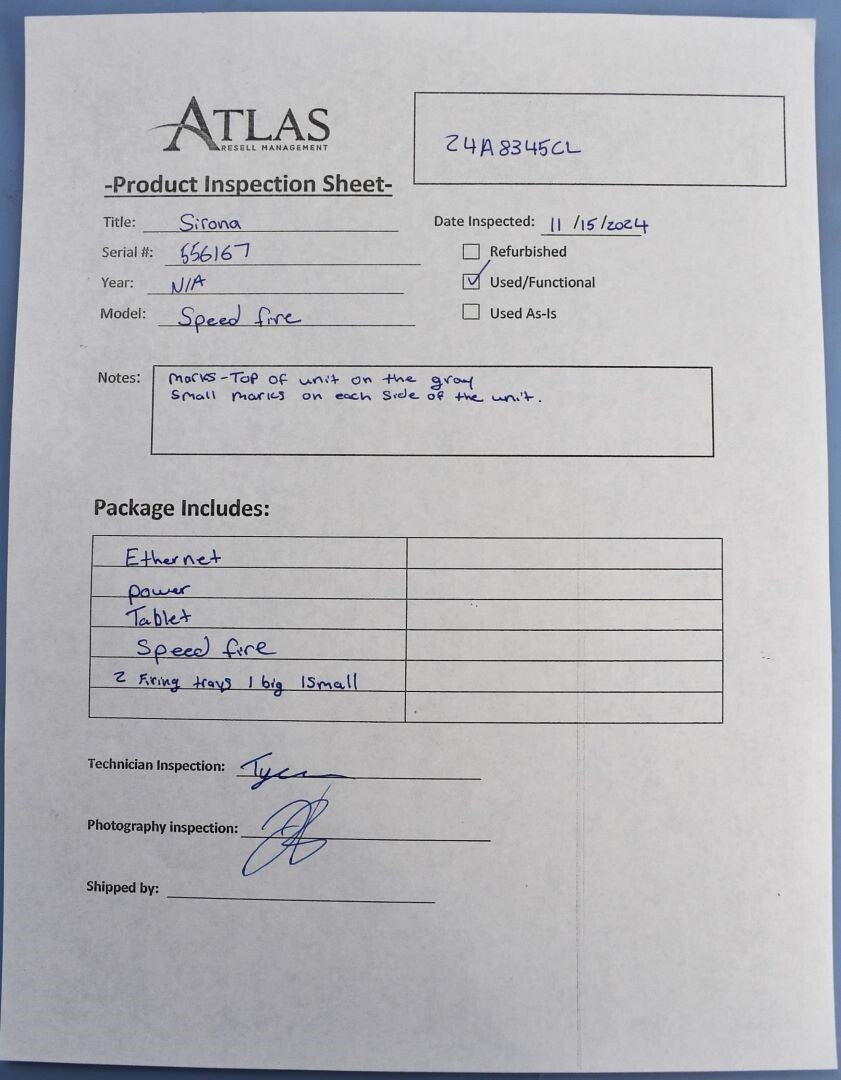 ATLAS
RESELL MANAGEMENT
24A8345CL
-Product Inspection Sheet-
Title: Sirona
Date Inspected: 11/15/2024
Serial #: 556167
Refurbished
Year: N/A
Used/Functional
Model: Speed fire
Used As-Is
Notes: Marks-Top of unit on the gray
Small marks on each side of the unit.
Package Includes:
Ethernet
power
Tablet
Speed fire
2 Firing trays 1 big 1small
Technician Inspection:
Photography inspection:
Shipped by: